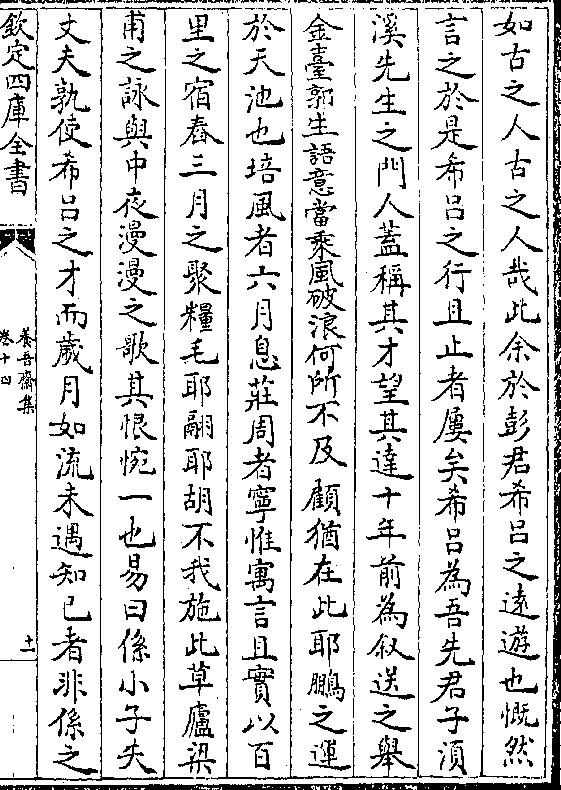 如古之人古之人哉此余於彭君希呂之遠遊也慨然
言之於是希呂之行且止者屢矣希呂為吾先君子須
溪先生之門人蓋稱其才望其達十年前為叙送之舉
金臺郭生語意當乘風破浪何所不及顧猶在此耶鵬之運
於天池也培風者六月息莊周者寧惟寓言且實以百
里之宿舂三月之聚糧毛耶翮耶胡不我施此草廬梁
甫之詠與中夜漫漫之歌其恨惋一也易曰係小子失
丈夫孰使希呂之才而歲月如流未遇知己者非係之
欽定四庫全書
養吾齋集
卷十四
十一